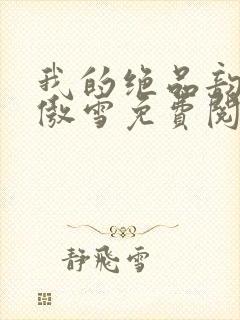 我的绝品
傲雪免费阅
静飛雪